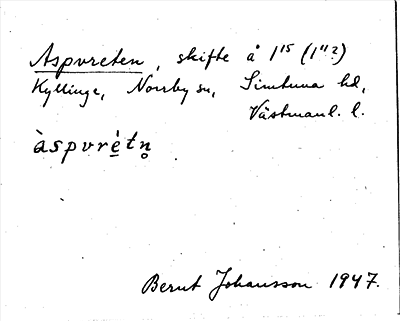 Aspvreten, skifte å 1¹⁵ (1¹¹?)
Kyllinge, Norrby sn, Simtuna hd,
Västmanl. l.
àspvrè̲tn̥
Bernt Johansson 1947.